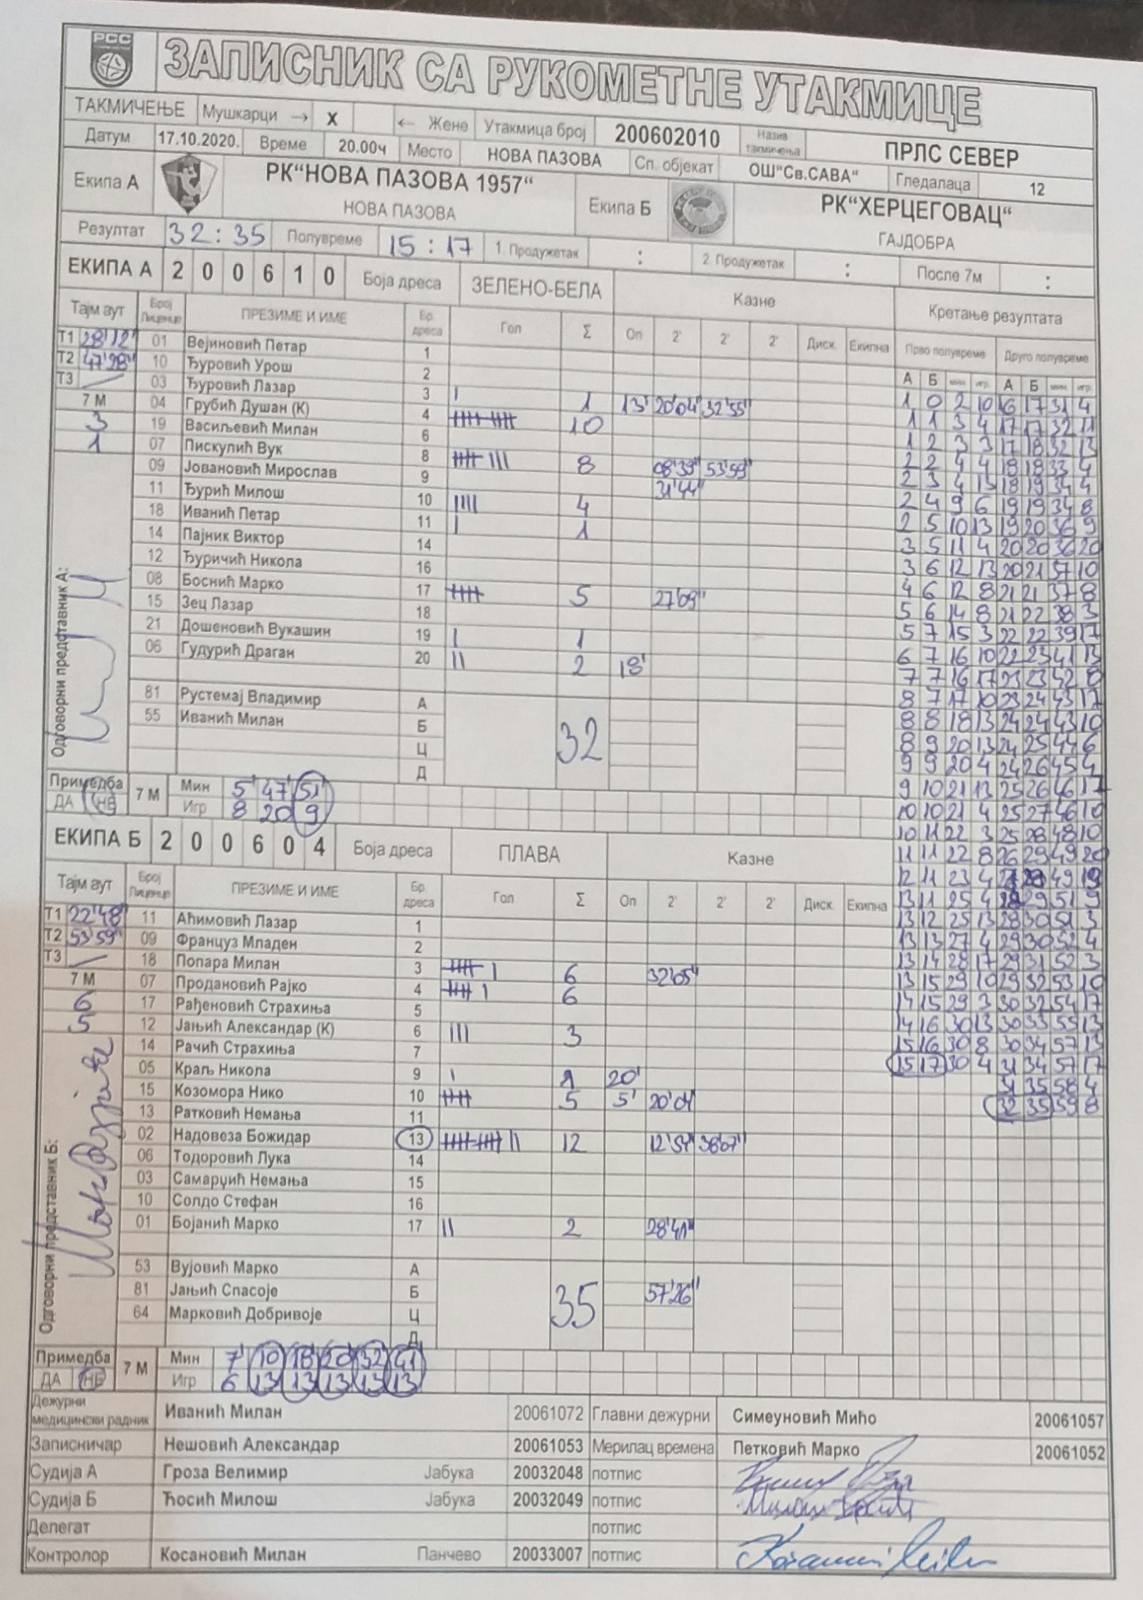 РСС
ЗАПИСНИК СА РУКОМЕТНЕ УТАКМИЦЕ
ТАКМИЧЕЊЕ Мушкарци → X ← Жене Утакмица број 200602010 Назив такмичења ПРЛС СЕВЕР
Датум 17.10.2020. Време 20.00ч Место НОВА ПАЗОВА Сп. објекат ОШ"Св.САВА" Гледалаца 12
Екипа А РК"НОВА ПАЗОВА 1957" НОВА ПАЗОВА Екипа Б РК"ХЕРЦЕГОВАЦ" ГАЈДОБРА
Резултат 32:35 Полувреме 15:17 1. Продужетак : 2. Продужетак : После 7м :
ЕКИПА А 2 0 0 6 1 0 Боја дреса ЗЕЛЕНО-БЕЛА Казне Кретање резултата
Тајм аут Број Лиценце ПРЕЗИМЕ И ИМЕ Бр. дреса Гол Σ Оп 2' 2' 2' Диск. Екипна Прво полувреме Друго полувреме
А Б мин. игр. А Б мин. игр.
Т1 28'12" 01 Вејиновић Петар 1
Т2 47'28" 10 Ђуровић Урош 2
Т3 03 Ђуровић Лазар 3 1
7 М 04 Грубић Душан (К) 4 10 13' 20'04" 32'55"
3 19 Васиљевић Милан 6
1 07 Пискулић Вук 8 8
09 Јовановић Мирослав 9 08'39" 53'59"
11 Ђурић Милош 10 4 31'44"
18 Иванић Петар 11 1
14 Пајник Виктор 14
12 Ђуричић Никола 16
08 Боснић Марко 17 5 27'09"
15 Зец Лазар 18
21 Дошеновић Вукашин 19 1
06 Гудурић Драган 20 2 18'
81 Рустемај Владимир А
55 Иванић Милан Б 32
Ц
Д
Одговорни представник А:
Примедба ДА НЕ 7 М Мин 5' 47' 51'
Игр 8 20 9
ЕКИПА Б 2 0 0 6 0 4 Боја дреса ПЛАВА Казне
Тајм аут Број Лиценце ПРЕЗИМЕ И ИМЕ Бр. дреса Гол Σ Оп 2' 2' 2' Диск. Екипна
Т1 22'48" 11 Аћимовић Лазар 1
Т2 53'59" 09 Француз Младен 2
Т3 18 Попара Милан 3 6 32'05"
7 М 07 Продановић Рајко 4 6
6 17 Рађеновић Страхиња 5
5 12 Јањић Александар (К) 6 3
14 Рачић Страхиња 7
05 Краљ Никола 9 1 20'
15 Козомора Нико 10 5 5' 20'04"
13 Ратковић Немања 11
02 Надовеза Божидар 13 12 12'54" 38'07"
06 Тодоровић Лука 14
03 Самарџић Немања 15
10 Солдо Стефан 16
01 Бојанић Марко 17 2 28'41"
53 Вујовић Марко А
81 Јањић Спасоје Б 35 57'26"
64 Марковић Добривоје Ц
Д
Одговорни представник Б:
Примедба ДА НЕ 7 М Мин 7' 10 18 20 32 41
Игр 6 13 13 13 13 13
1 0 2 10 16 17 31 4
1 1 3 4 17 17 32 11
1 2 3 3 17 18 32 13
2 2 4 4 18 18 33 4
2 3 4 13 18 19 34 4
2 4 9 6 19 19 34 8
2 5 10 13 19 20 36 9
3 5 11 4 20 20 36 20
3 6 12 13 20 21 37 10
4 6 12 8 21 21 37 8
5 6 14 8 21 22 38 3
5 7 15 3 22 22 39 17
6 7 16 10 22 23 41 13
7 7 16 17 23 23 42 8
8 7 17 10 23 24 43 17
8 8 18 13 24 24 43 10
8 9 20 13 24 25 44 6
9 9 20 4 24 26 45 4
9 10 21 13 25 26 46 17
10 10 21 4 25 27 46 10
10 11 22 3 25 28 48 10
11 11 22 8 26 29 49 20
12 11 23 4 29 49 19
13 11 25 4 28 29 51 9
13 12 25 13 28 30 51 3
13 13 27 4 29 30 52 4
13 14 28 17 29 31 52 3
13 15 29 10 29 32 53 10
14 15 29 3 30 32 54 17
14 16 30 13 30 33 55 13
15 16 30 8 30 34 57 13
15 17 30 4 31 34 57 17
31 35 58 4
32 35 59 8
Дежурни медицински радник Иванић Милан 20061072 Главни дежурни Симеуновић Мићо 20061057
Записничар Нешовић Александар 20061053 Мерилац времена Петковић Марко 20061052
Судија А Гроза Велимир Јабука 20032048 потпис
Судија Б Ћосић Милош Јабука 20032049 потпис
Делегат потпис
Контролор Косановић Милан Панчево 20033007 потпис